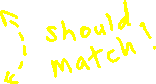 should
match!